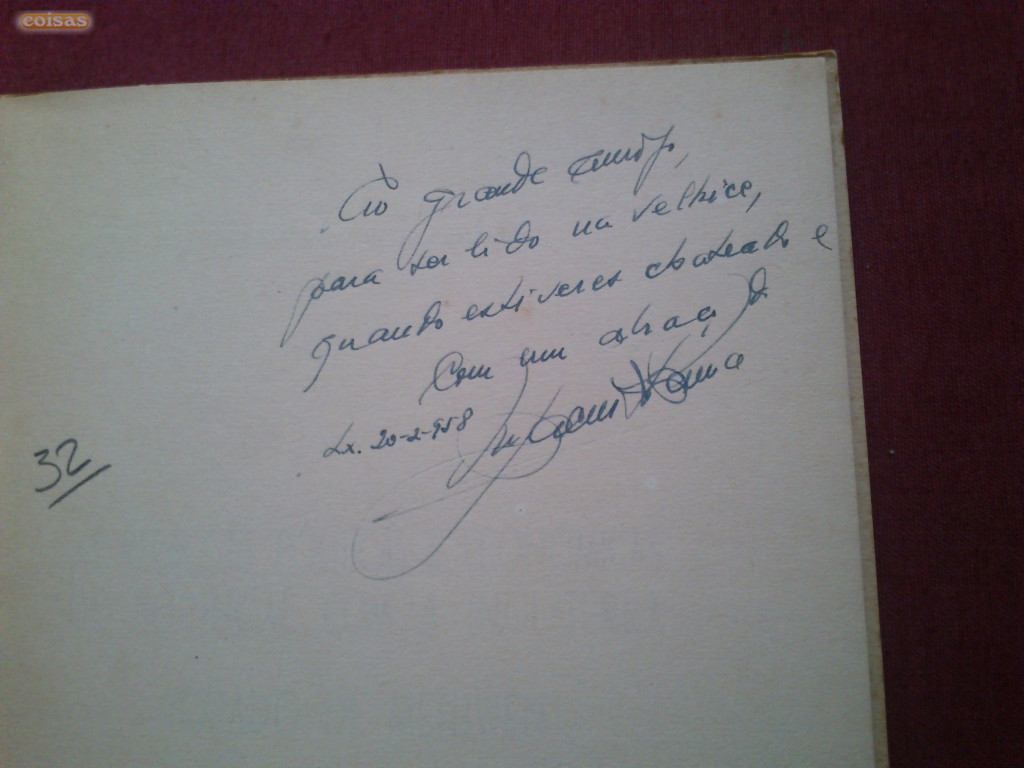 coisas
Ao grande amigo,
para ser lido na velhice,
quando estiveres chateado e
Com um abraço de
Lx. 20-2-958
32